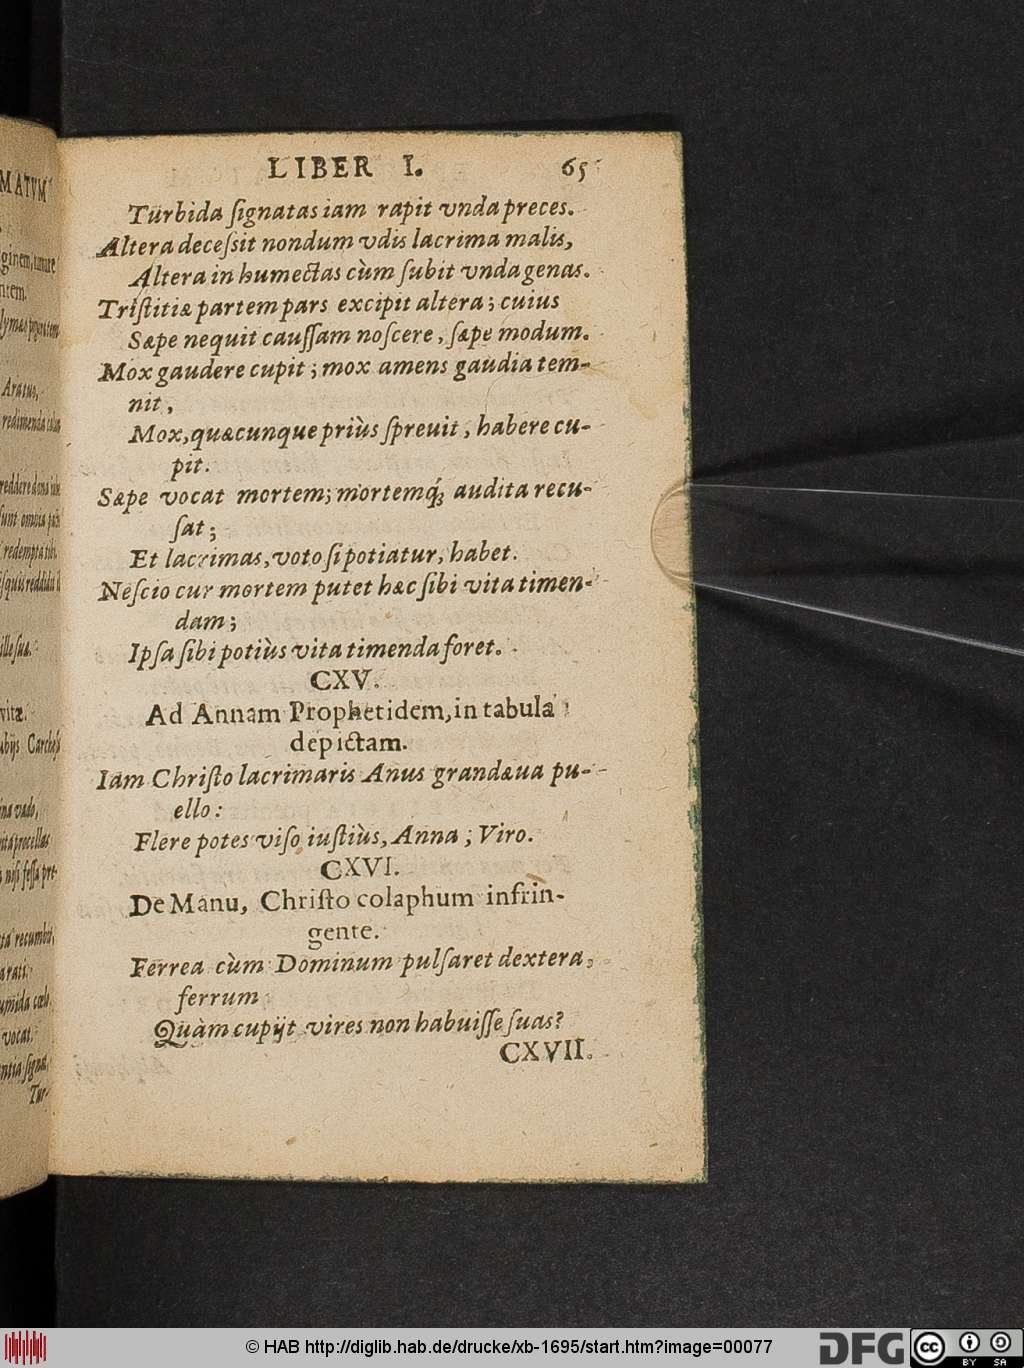 LIBER I. 65
Turbida ſignatas iam rapit vnda preces.
Altera deceſsit nondum vdis lacrima malis,
Altera in humectas cùm ſubit vnda genas.
Triſtitiæ partem pars excipit altera; cuius
Sæpe nequit cauſſam noſcere, ſæpe modum.
Mox gaudere cupit; mox amens gaudia tem-
nit,
Mox, quæcunque priùs ſpreuit, habere cu-
pit.
Sæpe vocat mortem; mortemq́; audita recu-
ſat;
Et lacrimas, voto ſi potiatur, habet.
Neſcio cur mortem putet hæc ſibi vita timen-
dam;
Ipſa ſibi potiùs vita timenda foret.
CXV.
Ad Annam Prophetidem, in tabula
depictam.
Iam Chriſto lacrimaris Anus grandæua pu-
ello:
Flere potes viſo iuſtiùs, Anna; Viro.
CXVI.
De Manu, Chriſto colaphum infrin-
gente.
Ferrea cùm Dominum pulſaret dextera,
ferrum
Quàm cupijt vires non habuiſſe ſuas?
CXVII.
MATVM
Aratus,
redimenda
reddere dona
ſunt omnia
redempta tibi
ille ſua.
vitæ.
procellas
niſi feſſa
recumbit,
arati:
vocat.
ſignat,
Tur-
© HAB http://diglib.hab.de/drucke/xb-1695/start.htm?image=00077
DFG
cc
BY SA